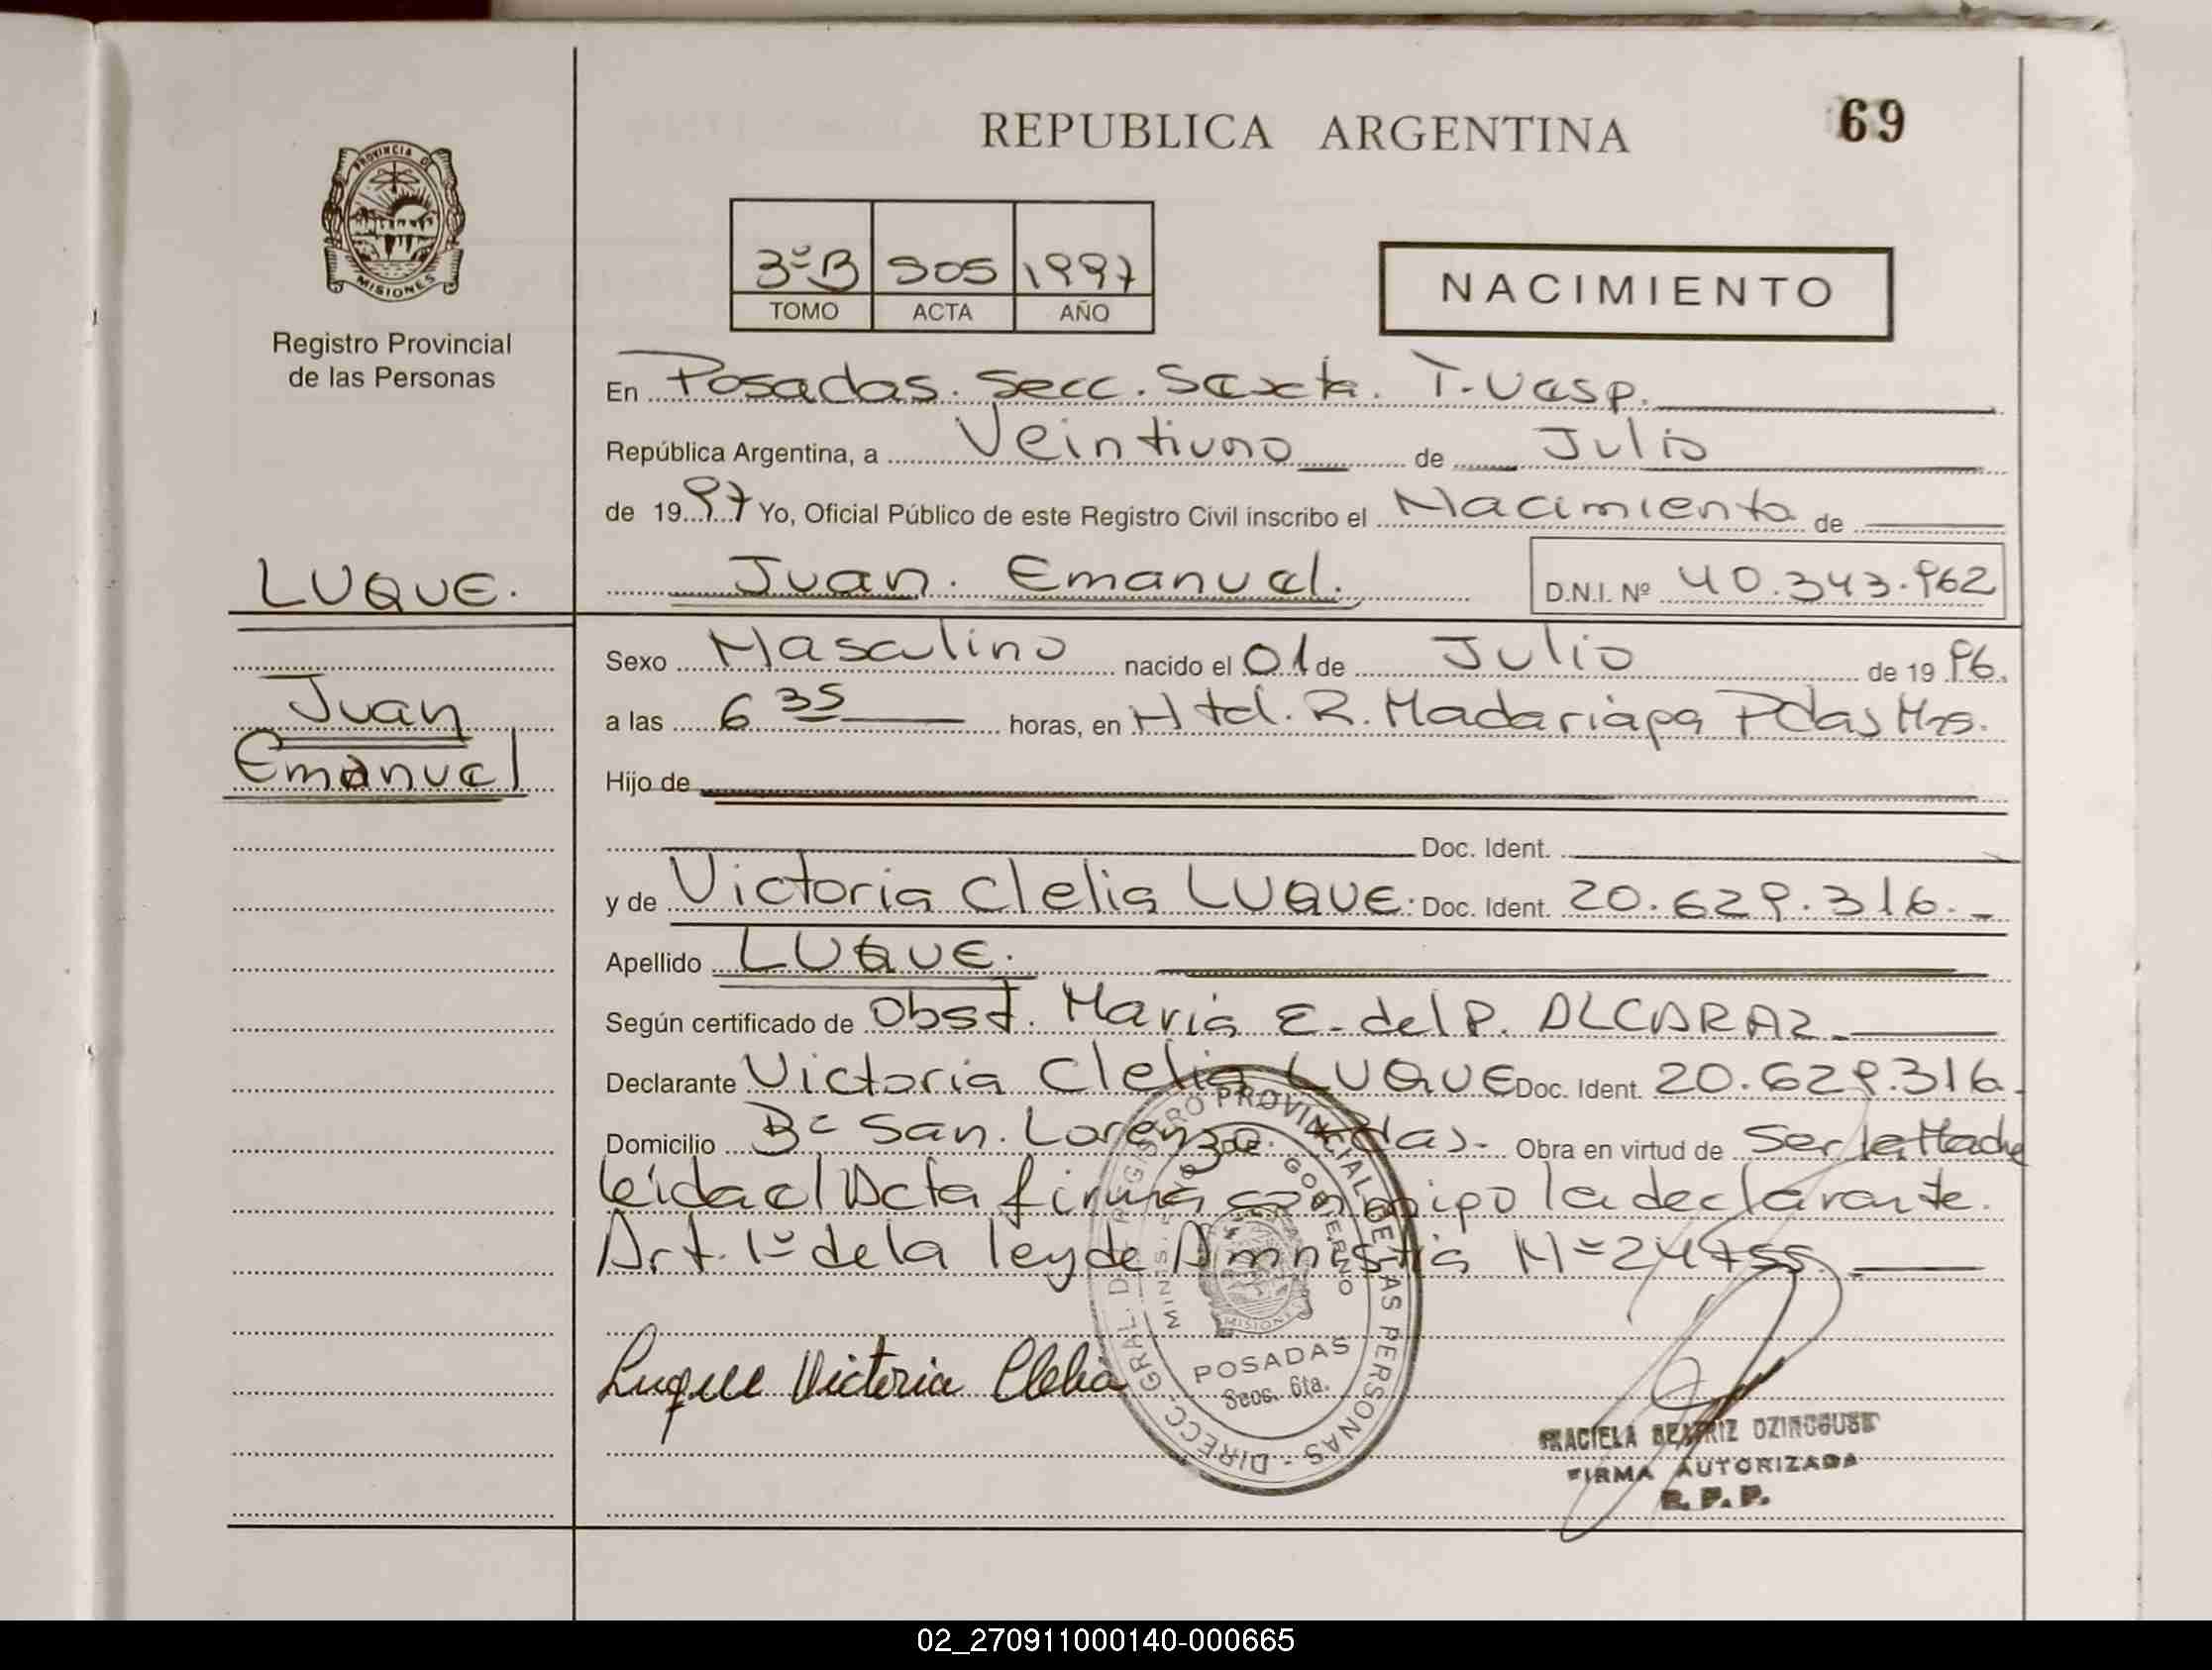 REPUBLICA ARGENTINA
69
PROVINCIA DE
MISIONES
Registro Provincial
de las Personas
3º B 505 1997
TOMO ACTA AÑO
NACIMIENTO
En Posadas. Secc. Sexta. T. Vesp.
República Argentina, a Veintiuno de Julio
de 1997 Yo, Oficial Público de este Registro Civil inscribo el Nacimiento de
LUQUE.
Juan. Emanuel.
D.N.I. Nº 40.343.962
Juan
Emanuel
Sexo Masculino nacido el 01 de Julio de 1996.
a las 6 35 horas, en Htal. R. Madariaga Pdas Mns.
Hijo de
Doc. Ident.
y de Victoria Clelia LUQUE. Doc. Ident. 20.629.316.-
Apellido LUQUE.
Según certificado de Obst. María E. del P. ALCARAZ
Declarante Victoria Clelia LUQUE Doc. Ident. 20.629.316.
Domicilio Bº San. Lorenzo. Pdas. Obra en virtud de Ser la Madre
leída el Acta firma conmigo la declarante.
Art. 1º de la ley de Amnistia Nº 24755
Luque Victoria Clelia
DIRECC. GRAL. DEL REGISTRO PROVINCIAL DE LAS PERSONAS
MINISTERIO DE GOBIERNO
MISIONES
POSADAS
Secc. 6ta.
GRACIELA BEATRIZ
FIRMA AUTORIZADA
R. P. P.
02_270911000140-000665